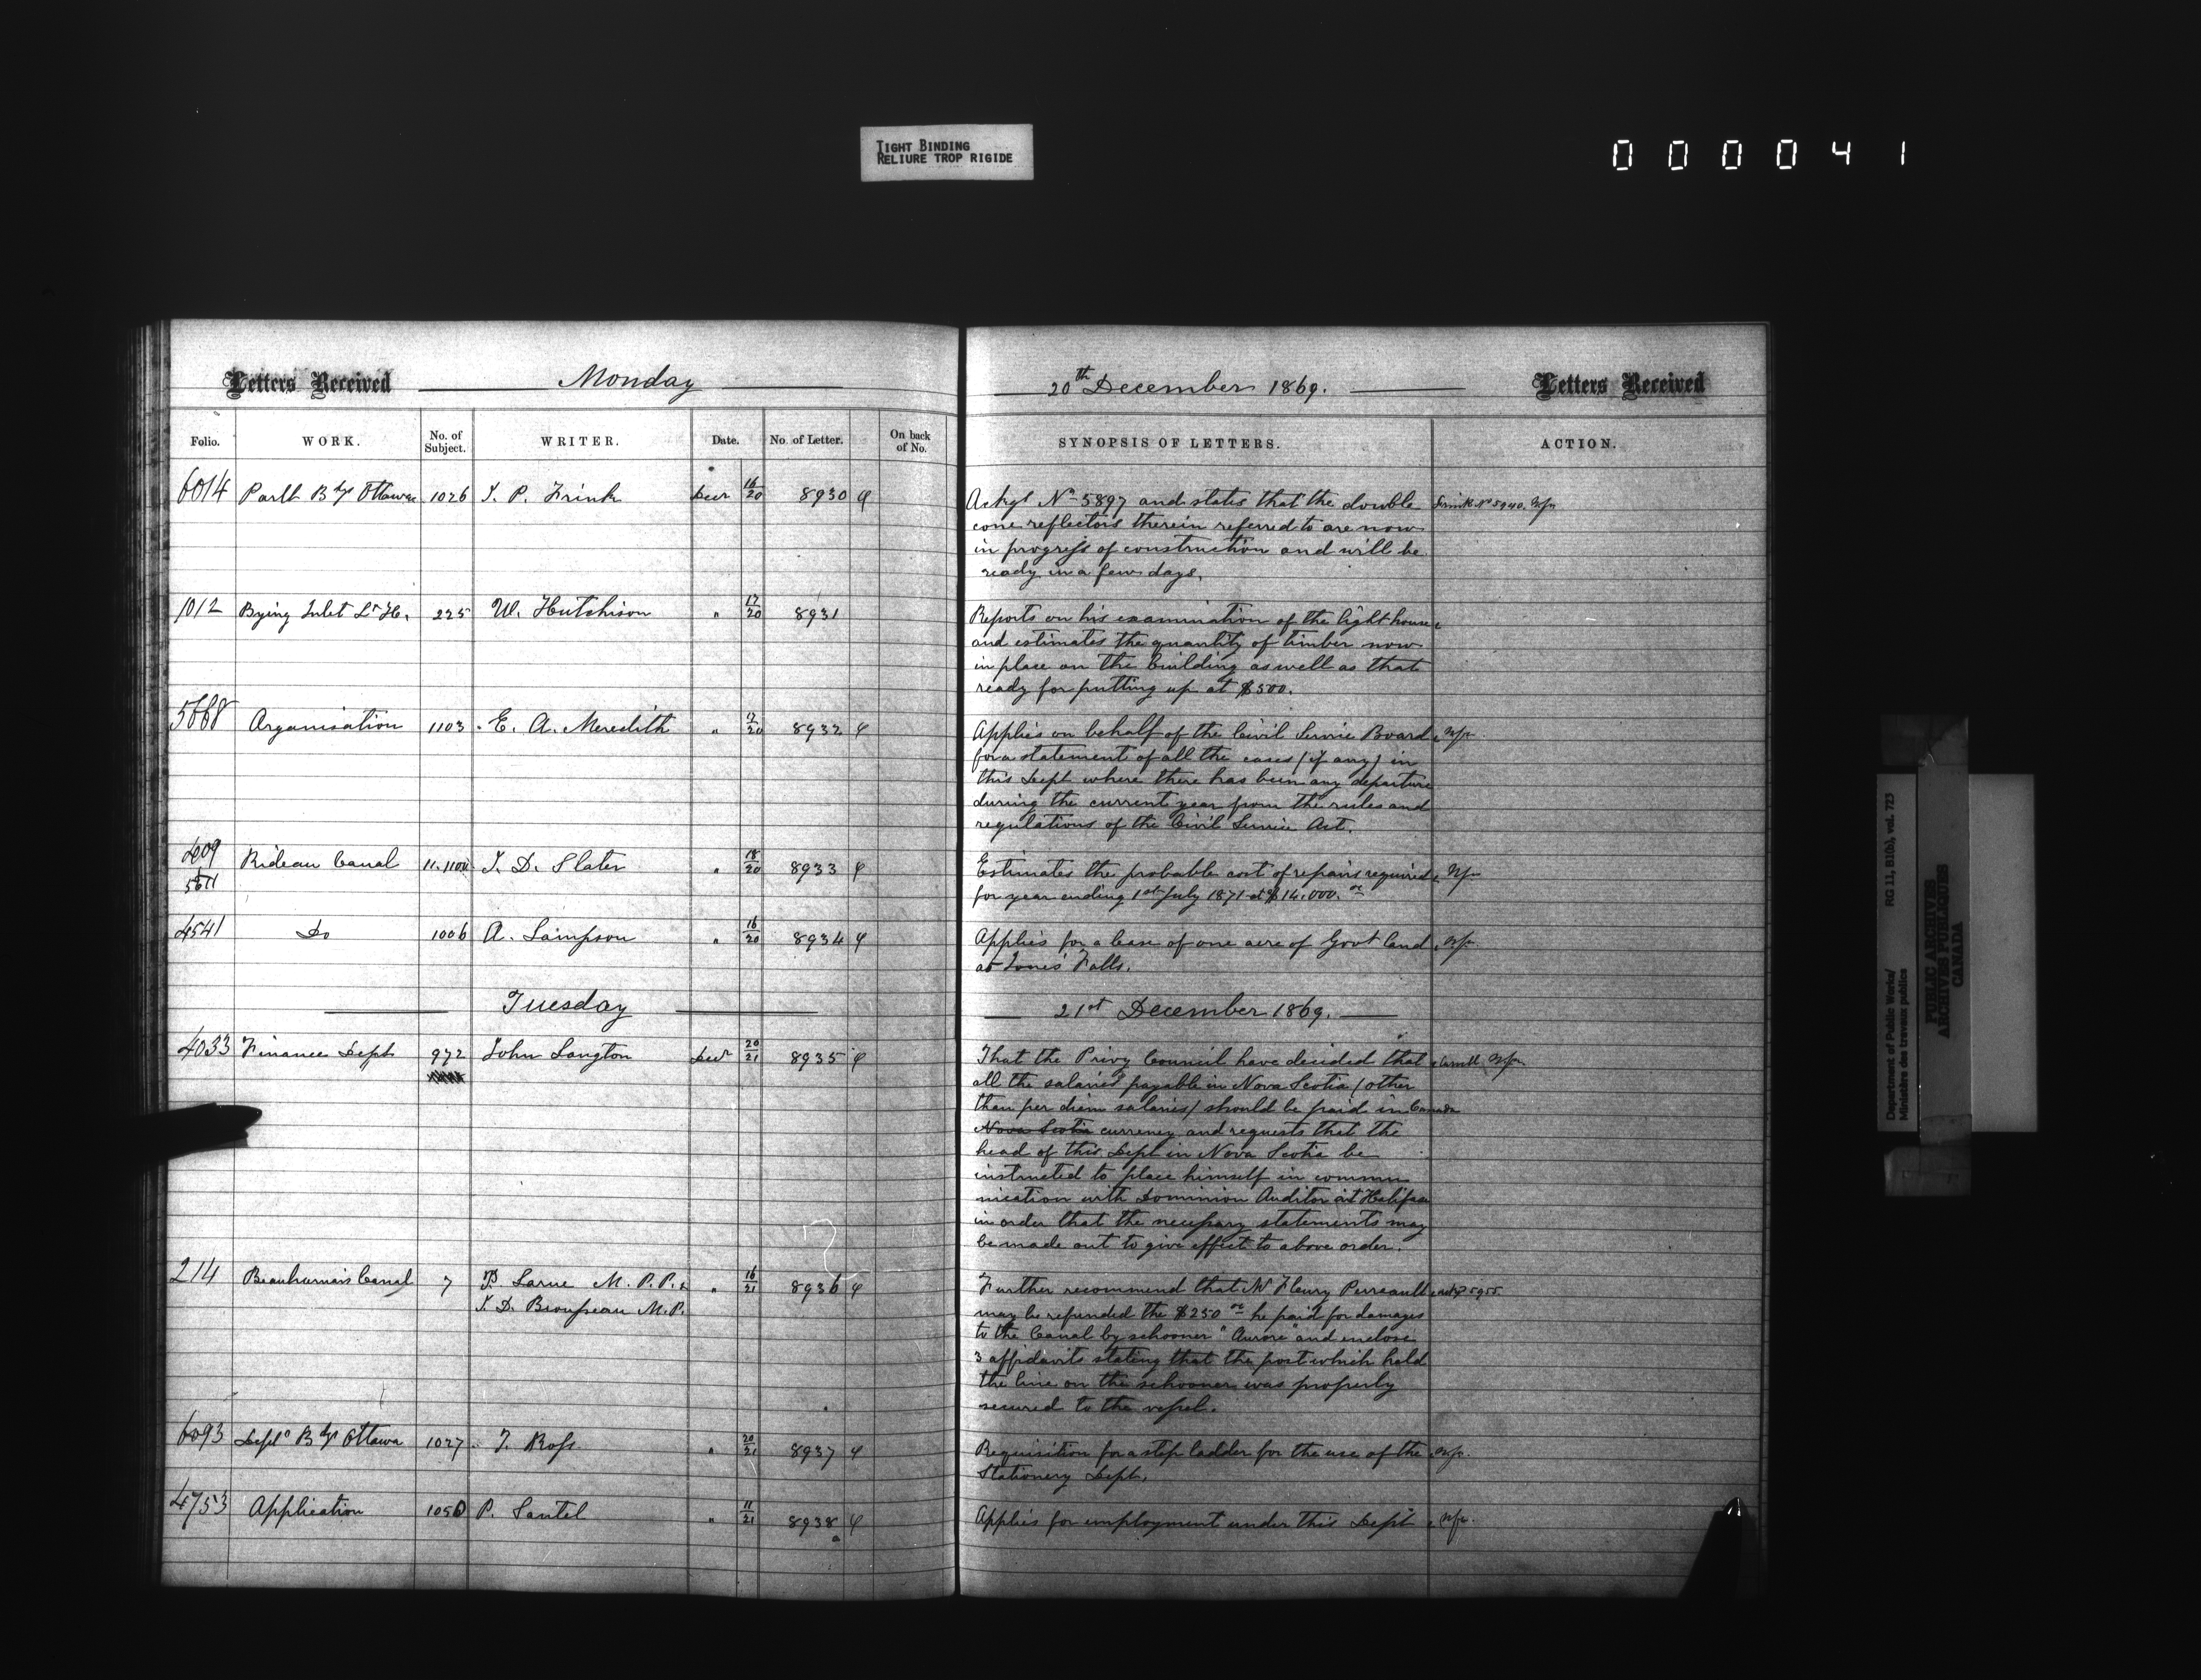 TIGHT BINDING
RELIURE TROP RIGIDE
000041
Letters Received Monday
Folio. WORK. No. of Subject. WRITER. Date. No. of Letter. On back of No.
6014 Parlt Bdgs Ottawa 1026 J. P. Frink Decr 16/20 8930
1012 Bying Inlet Lt Ho. 225 W. Hutchison " 17/20 8931
5668 Organisation 1103 E. A. Meredith " 17/20 8932
409 Rideau Canal 11.1104 J. D. Slater " 18/20 8933
4541 Do 1006 A. Sampson " 16/20 8934
Tuesday
4033 Finance Dept 972 John Langton Decr 20/21 8935
214 Beauharnois Canal 7 P. Larue M.P.P. & " 16/21 8936
J. D. Brousseau M.P.
6093 Deptl Bdgs Ottawa 1027 J. Ross " 20/21 8937
4753 Application 1050 P. Santel " 11/21 8938
20th December 1869. Letters Received
SYNOPSIS OF LETTERS. ACTION.
Ackgs No 5897 and states that the double Frink No 5940.
cone reflectors therein referred to are now
in progress of construction and will be
ready in a few days.
Reports on his examination of the light house
and estimates the quantity of timber now
in place on the building as well as that
ready for putting up at $500.
Applies on behalf of the Civil Service Board
for a statement of all the cases (if any) in
this Dept where there has been any departure
during the current year from the rules and
regulations of the Civil Service Act.
Estimates the probable cost of repairs required
for year ending 1st July 1871 at $14.000.oo
Applies for a lease of one acre of Govt land
at Jones' Falls.
21st December 1869.
That the Privy Council have decided that
all the salaries payable in Nova Scotia (other
than per diem salaries) should be paid in Canada
Nova Scotia currency and requests that the
head of this Dept in Nova Scotia be
instructed to place himself in commu
nication with Dominion Auditor at Halifax
in order that the necessary statements may
be made out to give effect to above order.
Further recommend that Mr Fleury Perreault 5955
may be refunded the $250 oo he paid for damages
to the Canal by schooner "Aurore" and enclose
3 affidavits stating that the post which held
the line on the schooner was properly
secured to the vessel.
Requisition for a step ladder for the use of the
Stationery Dept.
Applies for employment under this Dept
Department of Public Works/ RG 11, B1(b), vol. 723
Ministère des travaux publics
PUBLIC ARCHIVES
ARCHIVES PUBLIQUES
CANADA